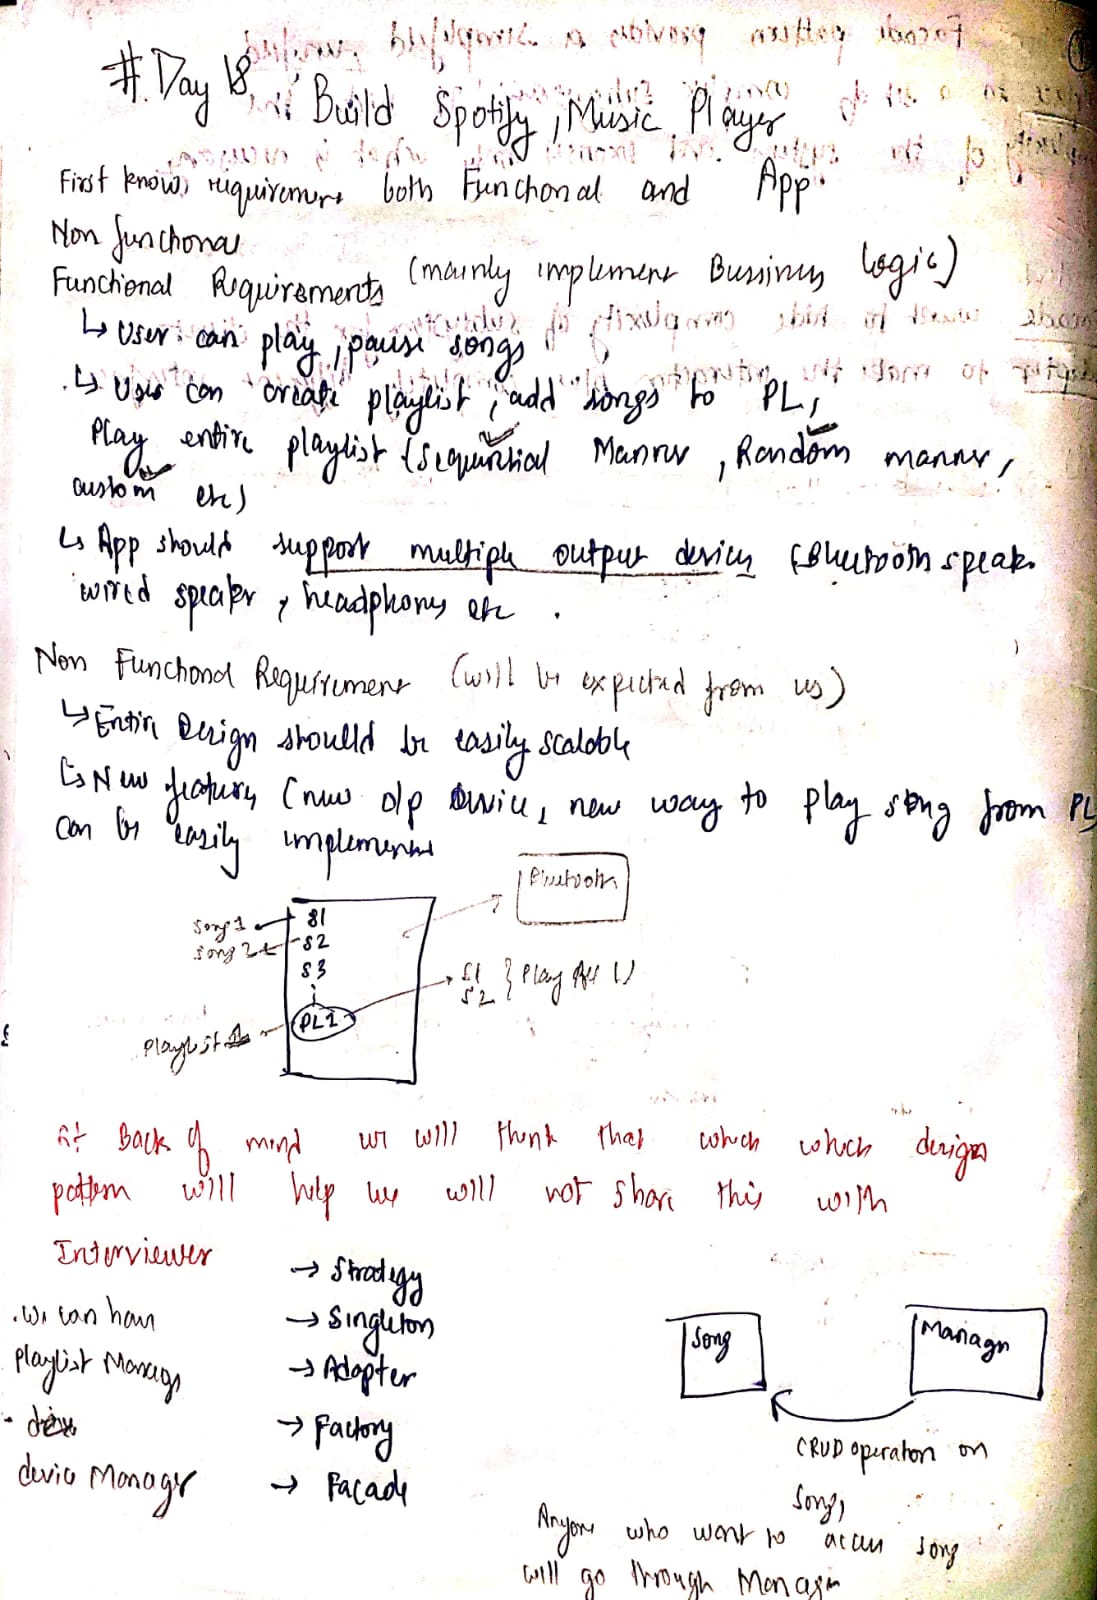 # Day 18 Build Spotify, Music Player
First know requirement both Functional and App
Non functional
Functional Requirements (mainly implement Bussiness Logic)
↳ User can play, pause songs
↳ User can create playlist, add songs to PL,
Play entire playlist (Sequential Manner, Random manner,
custom etc)
↳ App should support multiple output device (Bluetooth speak.
wired speaker, headphones etc.
Non Functional Requirement (will be expected from us)
↳ Entire Design should be easily scalable
↳ New features (new o/p device, new way to play song from PL
can be easily implement
Bluetooth
Song 1 S1
Song 2 S2
S3
S1
S2 } Play All ()
PL1
Playlist
At Back of mind we will think that which which design
pattern will help us will not share this with
Interviewer
→ Strategy
→ Singleton
→ Adapter
→ Factory
→ Facade
. We can have
Playlist Manager
device Manager
Song
Manager
CRUD operation on
Song,
Anyone who want to access song
will go through Manager